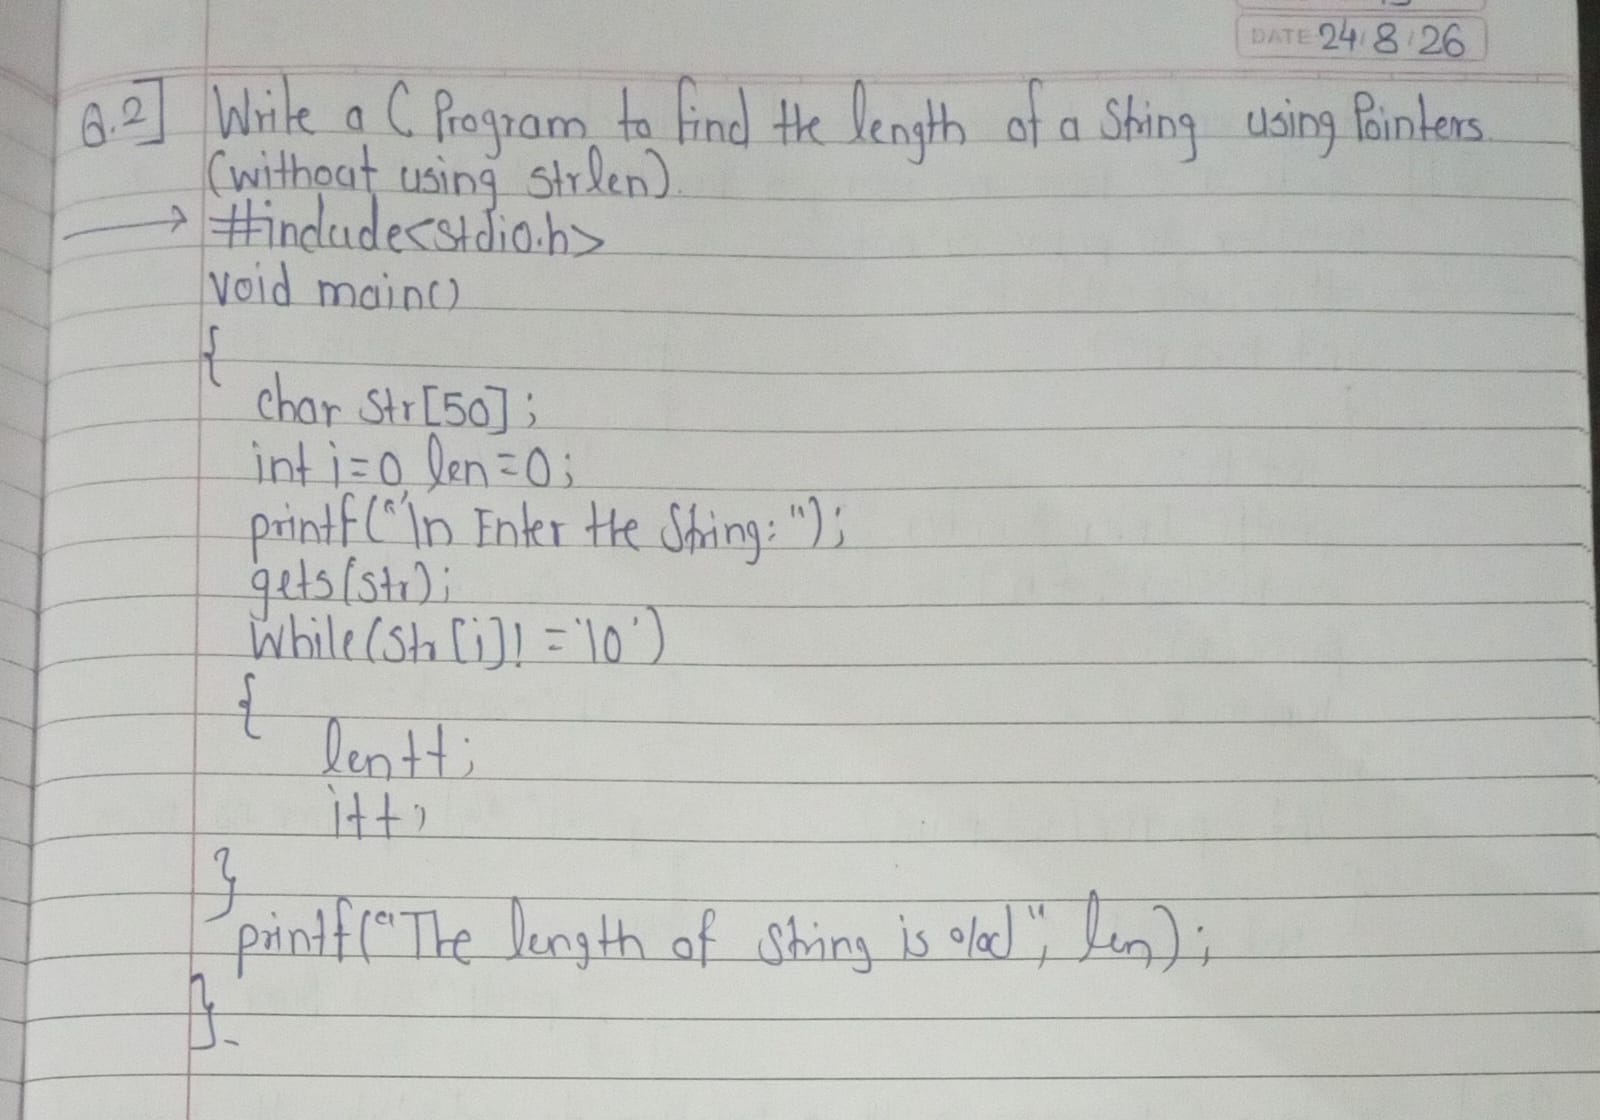 DATE 24/8/26
Q.2] Write a C Program to find the length of a String using Pointers.
(without using strlen).
→ #include<stdio.h>
void main()
{
char str[50];
int i=0 len=0;
printf("\n Enter the String: ");
gets(str);
while(str[i]!='\0')
{
len++;
i++;
}
printf("The length of string is %d", len);
}